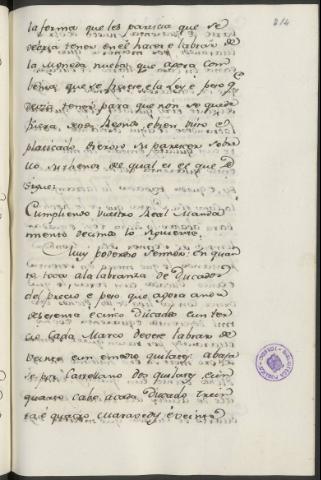 214
la forma que les parecia que se
devia tener en el hacer e labrar de
la moneda nueba que agora com
biene que se ficiese, e la ley e peso q̃
devia tener para que non se pueda
 e bien visto e
platicado dieron su parecer sobre
llo su thenor del qual es el que se
sigue:
Cumpliendo vuestro Real Manda
miento decimos lo siguiente
Muy poderoso Sennor: en quan
to toca a la labranza de Ducados
del precio e peso que agora anda
de sesenta e cinco Ducados e un ter
cio cada Marco debese labrar de
veinte e un medio quilates: abaja
se por Castellano dos quilates, e un
quarto cabe a cada Ducado trein
ta e quatro maravedis e veinte